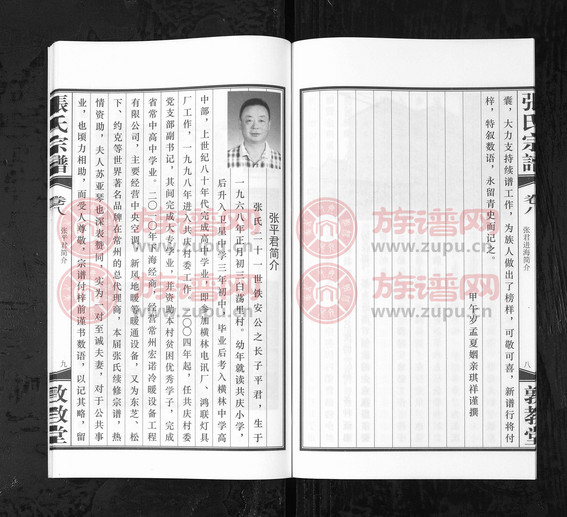 張氏宗譜
卷八
张君进海简介
八
敦教堂
囊，大力支持续谱工作，为族人做出了榜样，可敬可喜，新谱行将付
梓，特叙数语，永留青史而记之。
甲午岁孟夏姻亲琪祥谨撰
张平君简介
张氏二十一世铁安公之长子平君，生于
一九六八年正月初三白荡生村。幼年就读共庆小学，
后升入卫星中学三年初中，毕业后考入横林中学高
中部，上世纪八十年代完成高中学业，即参加横林电讯厂、鸿联灯具
厂工作，一九九八年进入共庆村委工作，二〇〇四年起，任共庆村委
党支部副书记，其间完成大专学业，并资助本村贫困优秀学子，完成
省常中高中学业。二〇一〇年下海经商，经营常州宏诺冷暖设备工程
有限公司，主要经营中央空调、新风地暖等暖通设备，现为东芝、松
下、约克等世界著名品牌在常州的总代理商，本届张氏续修宗谱，热
情资助，夫人苏亚琴也深表赞同，实为一对至诚夫妻，对于公共事
业，也顷力相助，而受人尊敬，宗谱付梓前谨书数语，以记其略，留
張氏宗譜
卷八
张平君简介
九
敦教堂
族谱网
www.zupu.cn
族谱网
www.zupu.cn
族谱网
www.zupu.cn
族谱网
www.zupu.cn